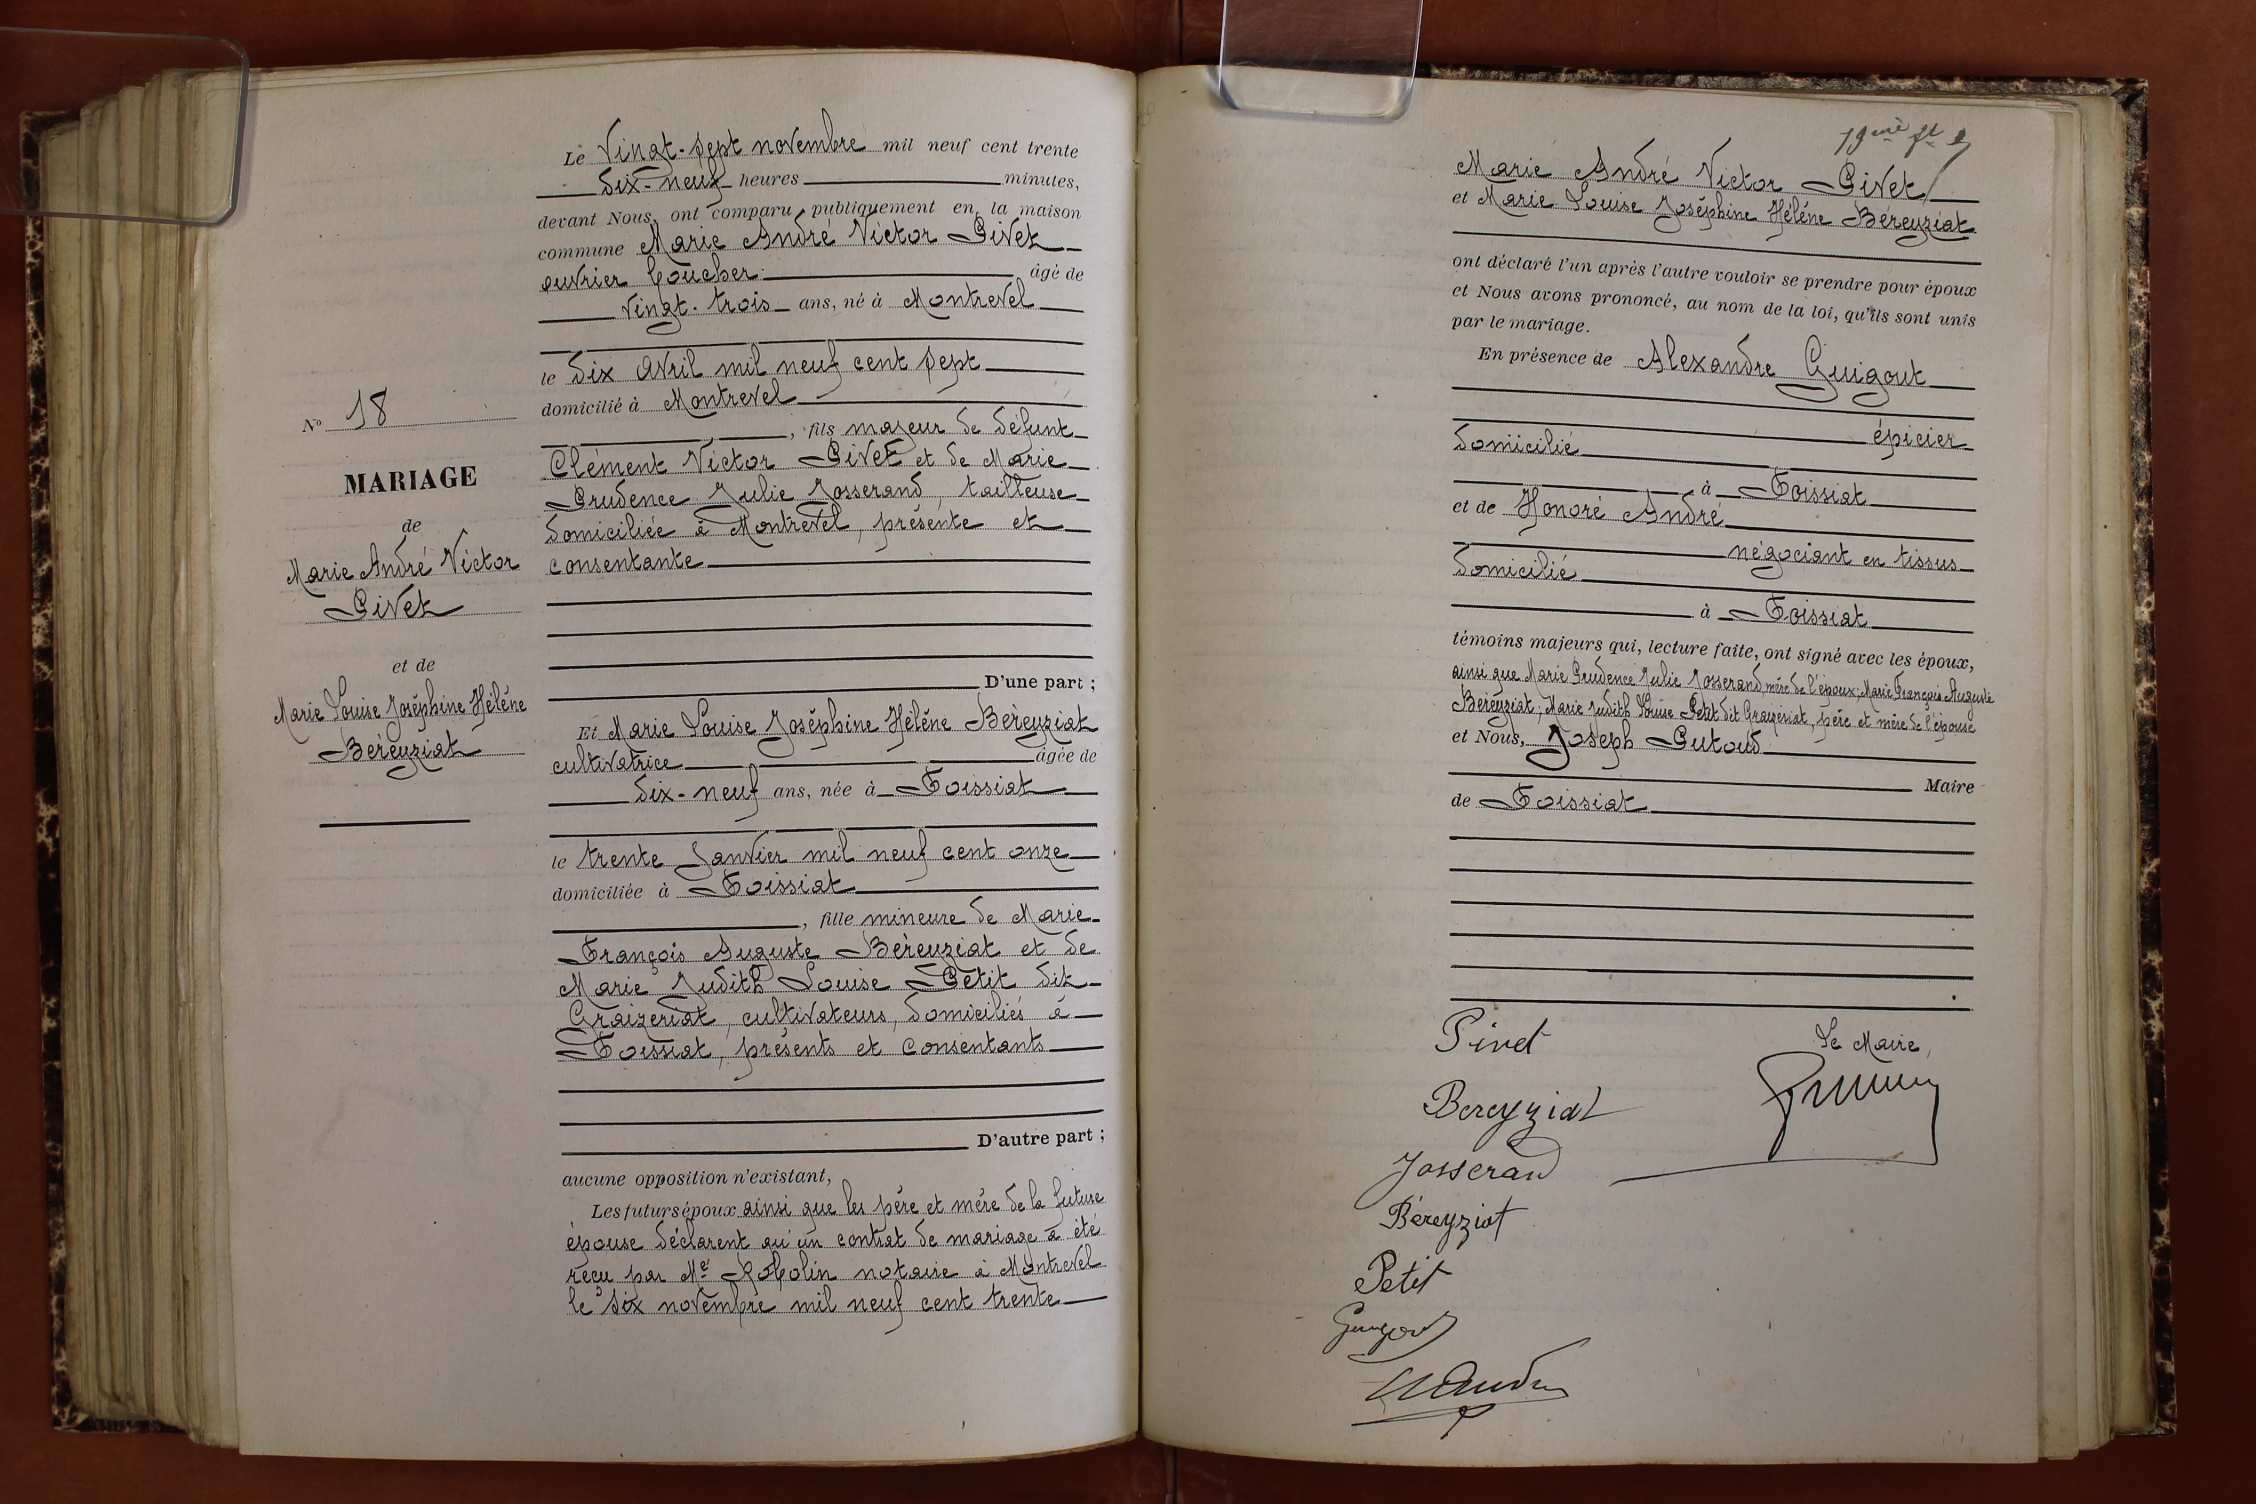 Le Vingt-sept novembre mil neuf cent trente
dix-neuf heures minutes,
devant Nous, ont comparu publiquement en la maison
commune Marie André Victor Pivet
ouvrier boucher âgé de
vingt-trois ans, né à Montrevel
le dix avril mil neuf cent sept
domicilié à Montrevel
, fils majeur de défunt
Clément Victor Pivet et de Marie
Prudence Julie Josserand, tailleuse
domiciliée à Montrevel, présente et
consentante
D'une part ;
Et Marie Louise Joséphine Hélène Béreyziat
cultivatrice âgée de
dix-neuf ans, née à Foissiat
le trente janvier mil neuf cent onze
domiciliée à Foissiat
, fille mineure de Marie
François Auguste Béreyziat et de
Marie Judith Louise Petit dit
Graizeriat, cultivateurs, domiciliés à
Foissiat, présents et consentants
D'autre part ;
aucune opposition n'existant,
Les futurs époux ainsi que les père et mère de la future
épouse déclarent qu'un contrat de mariage a été
reçu par Me Robolin notaire à Montrevel
le six novembre mil neuf cent trente
No 18
MARIAGE
de
Marie André Victor
Pivet
et de
Marie Louise Joséphine Hélène
Béreyziat
19ème ft
Marie André Victor Pivet
et Marie Louise Joséphine Hélène Béreyziat
ont déclaré l'un après l'autre vouloir se prendre pour époux
et Nous avons prononcé, au nom de la loi, qu'ils sont unis
par le mariage.
En présence de Alexandre Guigout
épicier
domicilié
à Foissiat
et de Honoré André
négociant en tissus
domicilié
à Foissiat
témoins majeurs qui, lecture faite, ont signé avec les époux,
ainsi que Marie Prudence Julie Josserand, mère de l'époux; Marie François Auguste
Béreyziat, Marie Judith Louise Petit dit Graizeriat, père et mère de l'épouse
et Nous, Joseph Putoud
Maire
de Foissiat
Pivet
Le Maire,
Bereyziat
Josserand
Béreyziat
Petit
Guigout
H André